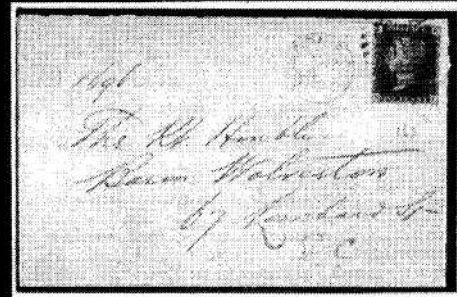 The Rt. Honble
Baron Wolverton
67 Lombard St
E C